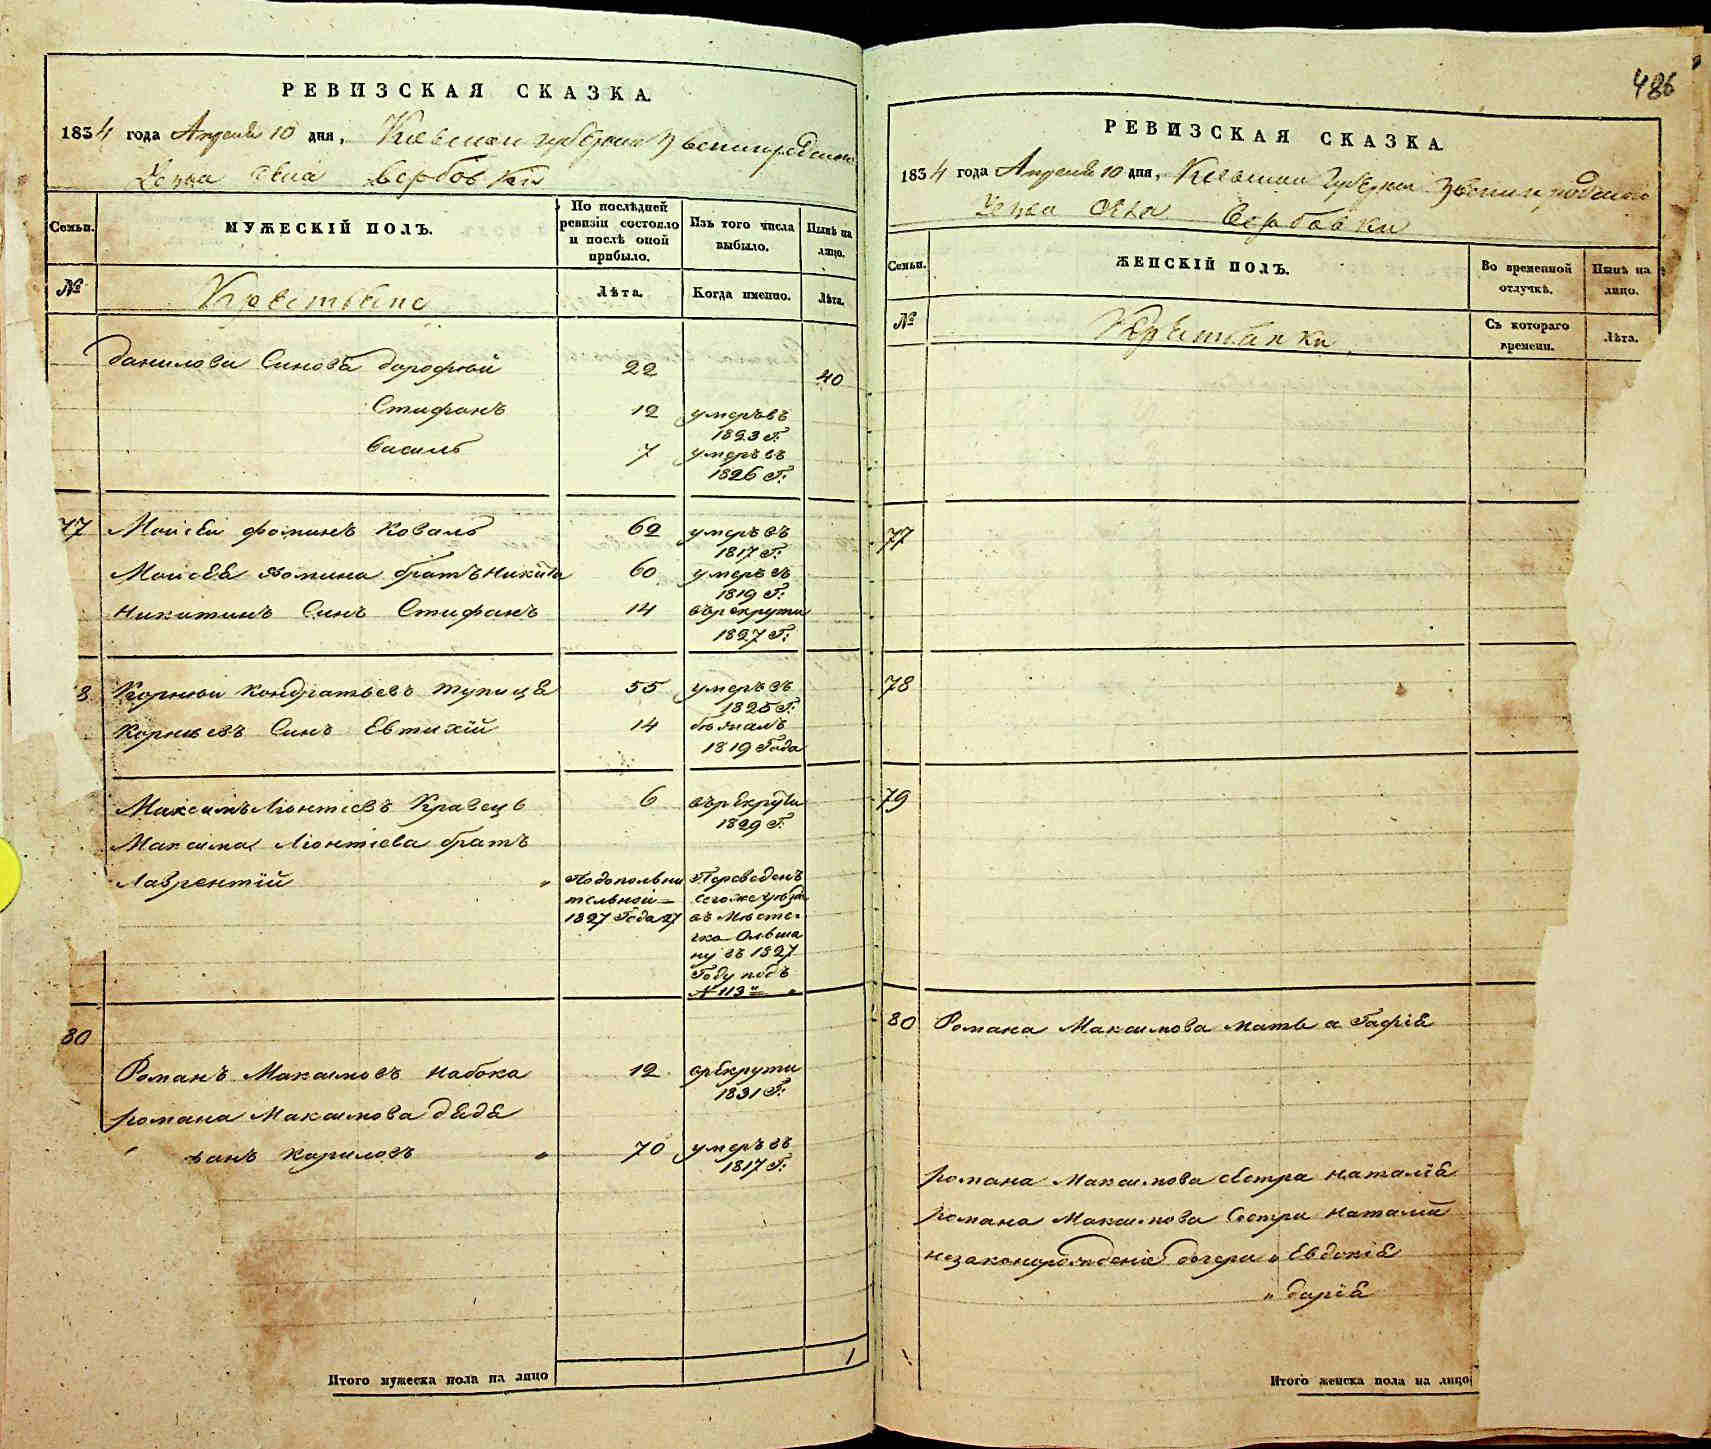 РЕВИЗСКАЯ СКАЗКА.
1834 года Апреля 10 дня, Киевской губернии Звенигородского
Уезда села Вербовки
Семьи.
МУЖЕСКІЙ ПОЛЪ.
По послѣдней ревизіи состояло и послѣ оной прибыло.
Изъ того числа выбыло.
Нынѣ на лицо.
№
Крестьяне
Лѣта.
Когда именно.
Лѣта.
Данилови Синовѣ Дорофѣй 22 40
Стифанъ 12 умеръ въ
1823 Г.
Василь 7 умеръ въ
1826 Г:
77 Моисѣй Фоминъ Коваль 62 умеръ въ
1817 Г:
Моисѣя Фомина братъ Никита 60 умеръ въ
1819 Г:
Никитинъ Синъ Стифанъ 14 въ рекрути
1827 Г:
8 Корнѣй Кондратьевъ Тупица 55 умеръ въ
1825 Г:
Корнѣевъ Синъ Евтихій 14 бѣжалъ
1819 Года
Максимъ Ліонтіевъ Кравецъ 6 въ рекрути
1829 Г.
Максима Ліонтіева братъ
Лаврентій " По дополни Переведенъ
тельной сего же уѣзда
1827 Года 27 въ Мѣсте-
чко Ольша
ну въ 1827
Году подъ
№ 113"
80
Романъ Максимовъ Набока 12 врекрути
1831 Г:
Романа Максимова дядя
ванъ Кариловъ " 70 умеръ въ
1817 Г:
1
Итого мужеска пола на лицо
486
РЕВИЗСКАЯ СКАЗКА.
1834 года Апреля 10 дня, Киевской Губернии Звенигородского
Уезда Села Вербовки
Семьи.
ЖЕНСКІЙ ПОЛЪ.
Во временной отлучкѣ.
Нынѣ на лицо.
№
Крестьянки
Съ котораго времени.
Лѣта.
77
78
79
80 Романа Максимова мать Агафія
Романа Максимова сестра Наталія
Романа Максимова Сестри Наталіи
незаконорожденіе дочери " Евдокія
" Дарія
Итого женска пола на лицо